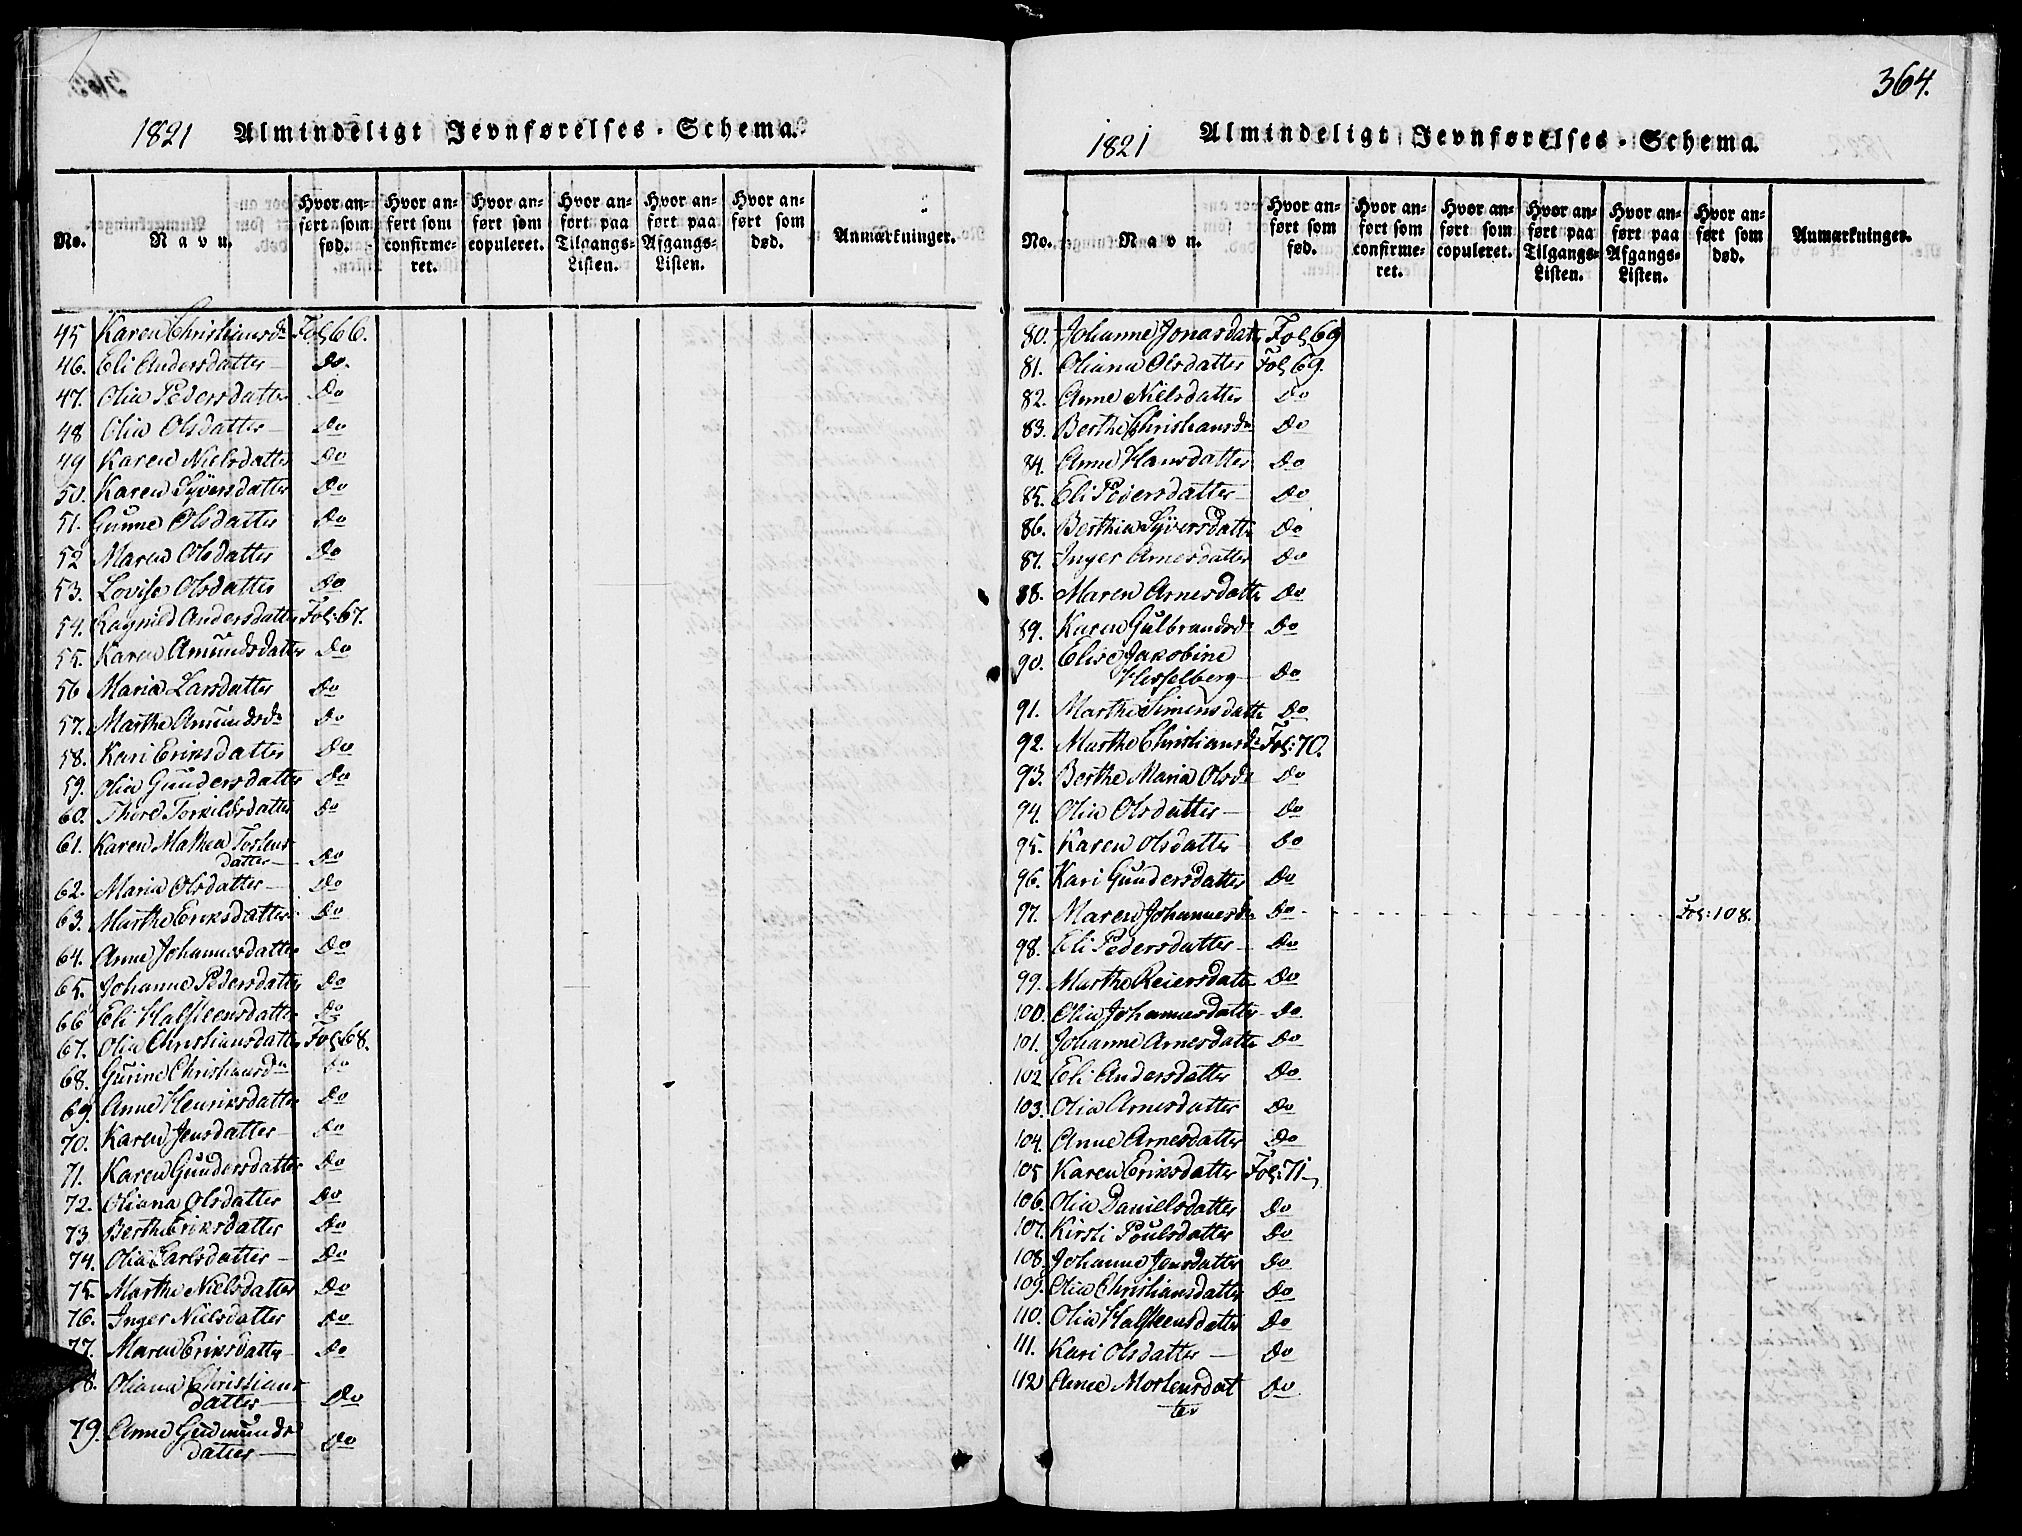 364.
1821 Almindeligt Jevnførelses-Schema.
No.
Navn.
Hvor anført som fød.
Hvor anført som confirmeret.
Hvor anført som copuleret.
Hvor anført paa Tilgangs-Listen.
Hvor anført paa Afgangs-Listen.
Hvor anført som død.
Anmærkninger.
45 Karen Christiansdr Fol 66.
46. Eli Andersdatter Do.
47. Olia Pedersdatter Do
48 Olia Olsdatter Do
49 Karen Nielsdatter Do
50. Karen Syversdatter Do
51. Gunne Olsdatter Do
52 Maren Olsdatter Do
53. Lovise Olsdatter Do
54. Ragnild Andersdatter Fol: 67.
55. Karen Amundsdatter Do
56 Maria Larsdatter Do
57. Marthe Amundsdr Do
58. Kari Eriksdatter Do
59. Olia Gundersdatter Do
60. Thore Torkildsdatter Do
61. Karen Mathea Torstens
datter Do
62. Maria Olsdatter Do
63. Marthe Eriksdatter Do
64. Anne Johannesdatter Do
65. Johanne Pedersdatter Do
66 Eli Halfsteensdatter Do
67. Olia Christiansdatter Fol 68.
68. Gurine Christiansdr Do
69. Anne Henriksdatter Do
70. Karen Jensdatter Do
71. Karen Gundersdatter Do
72. Oliana Olsdatter Do
73 Berthe Eriksdatter Do
74. Olia Larsdatter Do
75. Marthe Nielsdatter Do
76. Inger Nielsdatter Do
77. Maren Eriksdatter Do
78. Oliana Christians
datter Do
79. Anne Gudmunds
datter Do
1821 Almindeligt Jevnførelses-Schema.
No.
Navn.
Hvor anført som fød.
Hvor anført som confirmeret.
Hvor anført som copuleret.
Hvor anført paa Tilgangs-Listen.
Hvor anført paa Afgangs-Listen.
Hvor anført som død.
Anmærkninger.
80. Johanne Jonasdatter Fol 69
81. Oliana Olsdatter Fol 69.
82. Anne Nielsdatter Do
83. Berthe Christiansdr Do
84. Anne Hansdatter Do
85. Eli Pedersdatter Do
86. Berthia Syversdatter Do
87. Inger Arnesdatter Do
88. Maren Arnesdatter Do
89. Karen Gulbrandsdr Do
90. Elise Jakobine
Hesselberg Do
91. Marthe Simensdatter Do
92. Marthe Christiansdr Fol: 70.
93. Berthe Maria Olsdr Do
94. Olia Olsdatter Do
95. Karen Olsdatter Do
96. Kari Gundersdatter Do
97. Maren Johannesdr Do Fol: 108.
98. Eli Pedersdatter Do
99. Marthe Reiersdatter Do
100. Olia Johannesdatter Do
101. Johanne Arnesdatter Do
102 Eli Andersdatter Do
103. Olia Arnesdatter Do
104. Anne Arnesdatter Do
105 Karen Eriksdatter Fol: 71
106. Olia Danielsdatter Do
107. Kirsti Poulsdatter Do
108. Johanne Jensdatter Do
109. Olia Christiansdatter Do
110. Olia Halfsteensdatter Do
111. Kari Olsdatter Do
112 Anne Mortensdat
ter Do